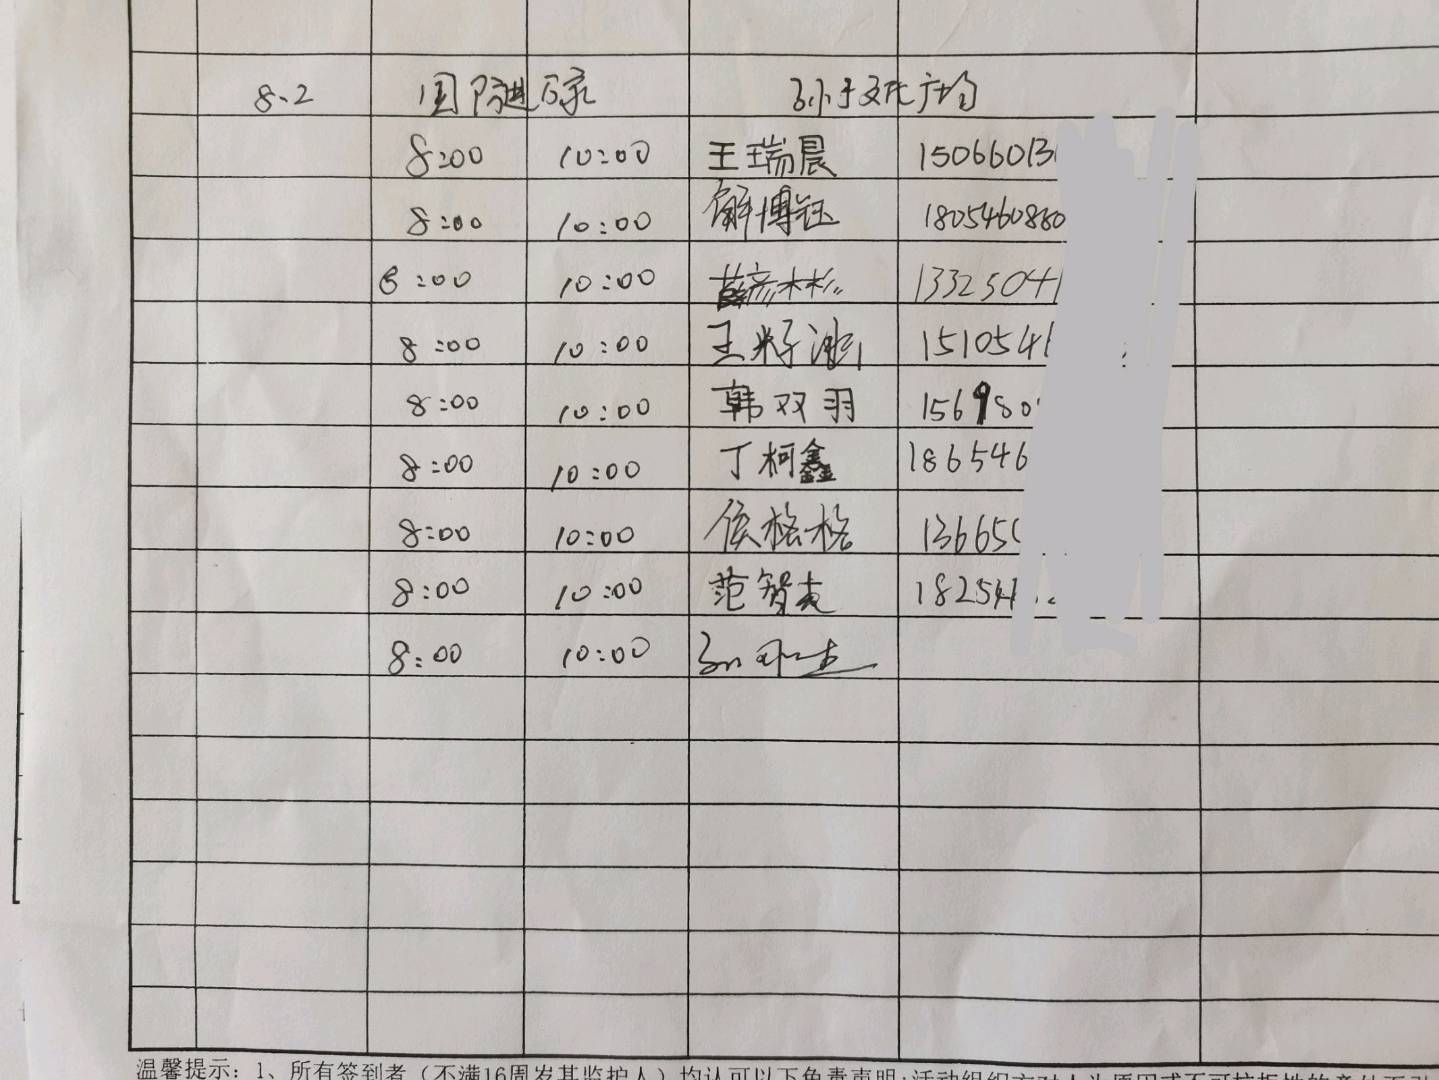 8.2 国防进万家 孙子文化广场
8:00 10:00 王瑞晨 15066013
8:00 10:00 解博钰 1805460860
8:00 10:00 薛彦彬 13325041
8:00 10:00 王籽涵 1510541
8:00 10:00 韩双羽 156980
8:00 10:00 丁柯鑫 186546
8:00 10:00 侯格格 13665
8:00 10:00 范智 18254
8:00 10:00
温馨提示：1、所有签到者（不满16周岁其监护人）均认可以下免责声明:活动组织方对人为原因或不可抗拒性的意外